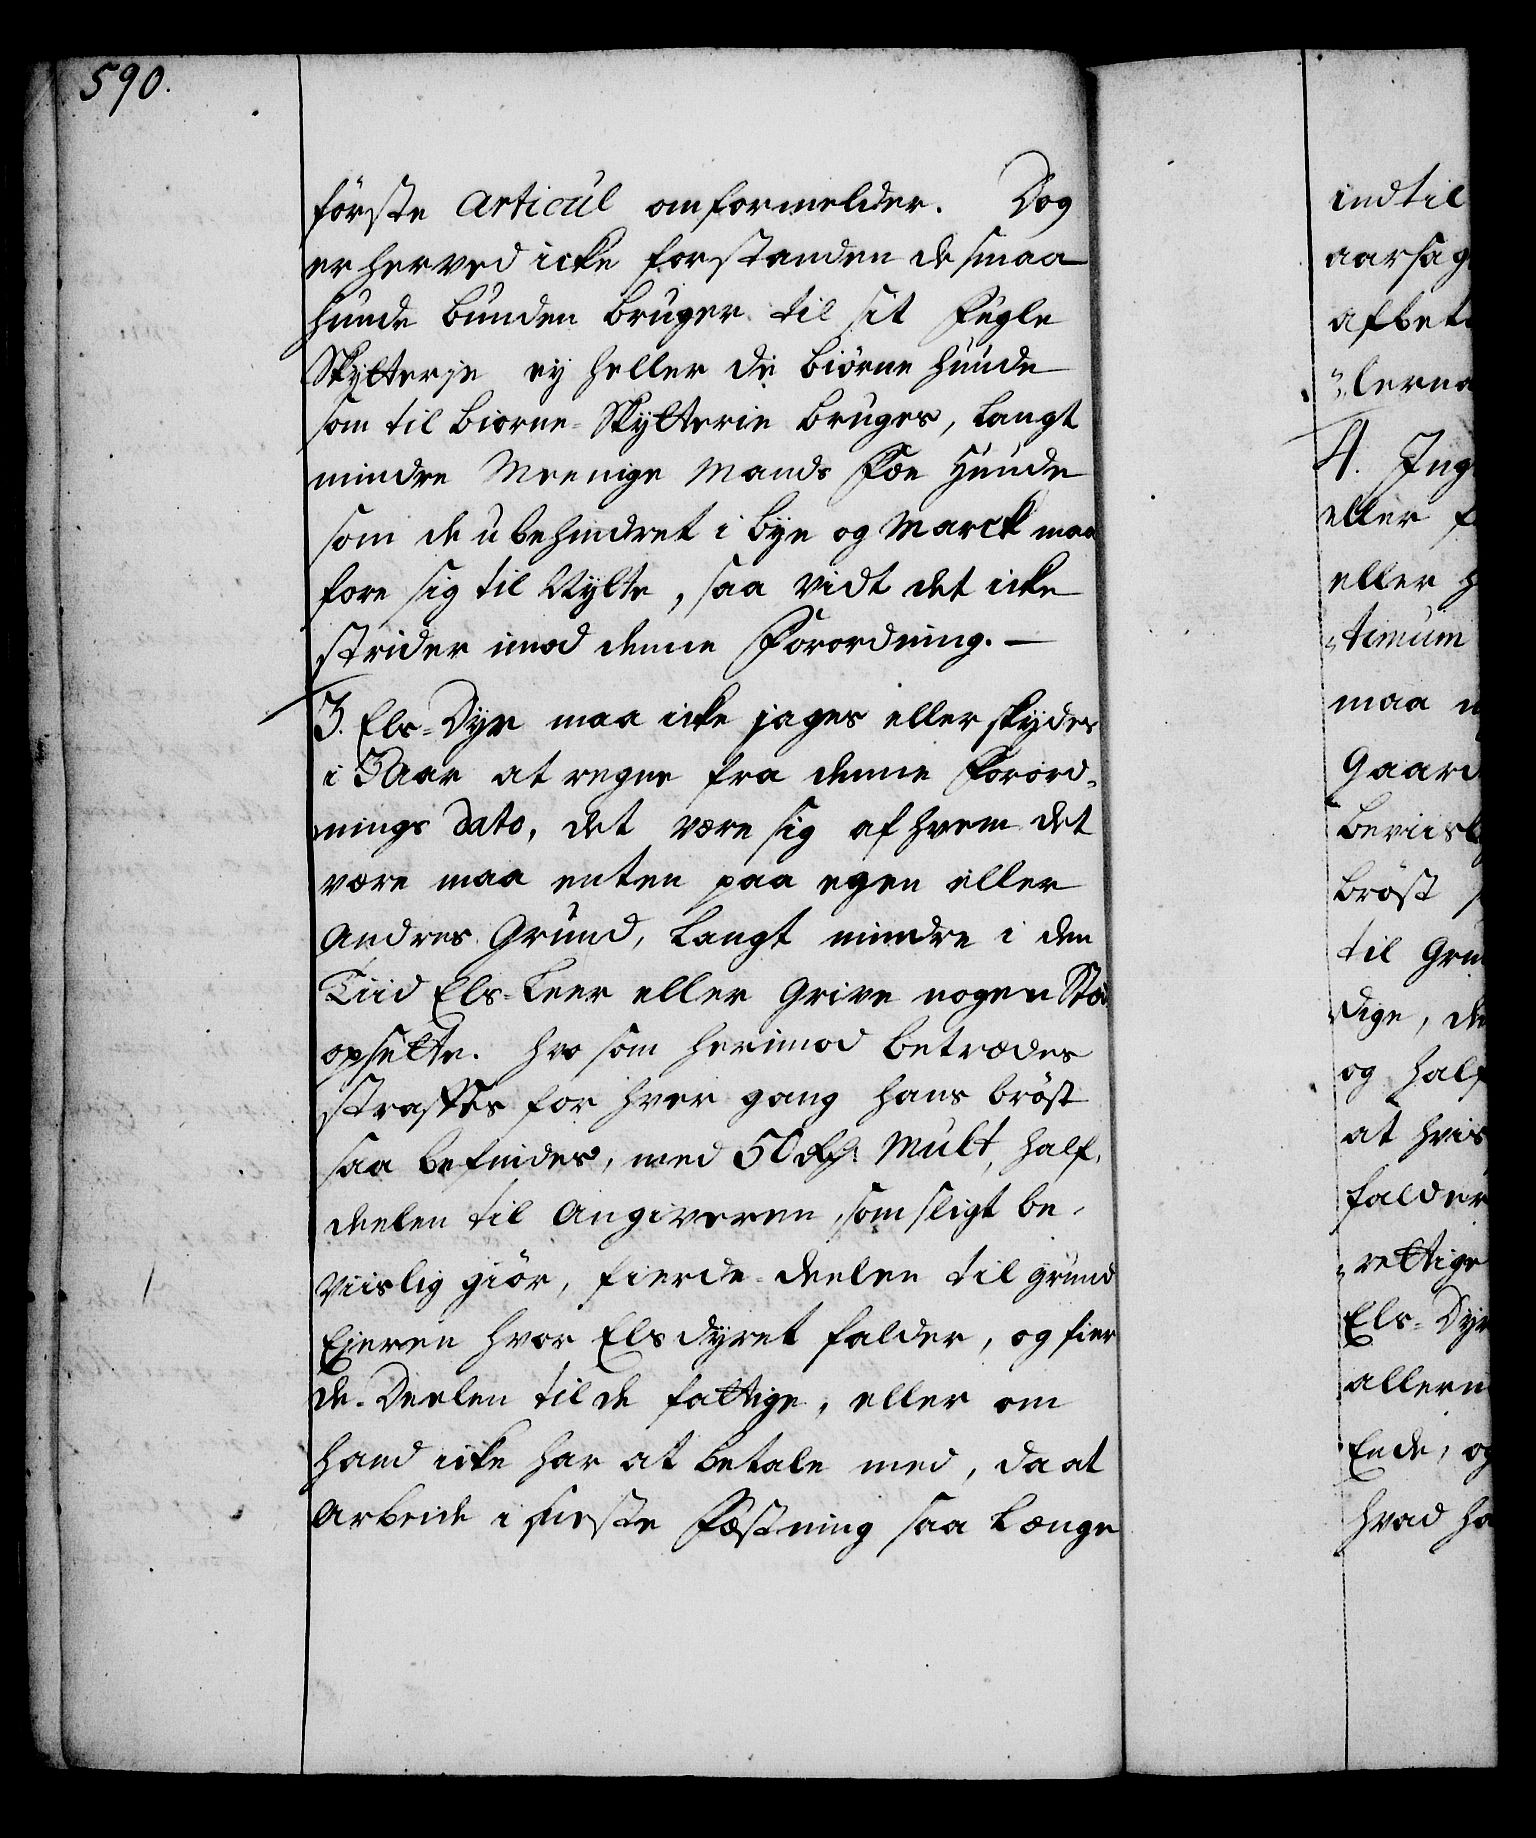 590.
förste Articul omformelder. Dog
er herved icke forstanden de smaa
hunde bunden bruger til sit Fugle
Skytterje ey heller de biörne hunde
som til biörne-Skytterie bruges, langt
mindre Meenige Mands Fæe Hunde
som de ubehindret i bye og Marck maa
fore sig til Nytte, saa vidt det icke
strider imod denne Forordning. —
3. Els-Dyr maa icke jages eller skydes
i 3 Aar at regne fra denne Forord-
nings Dato, det være sig af hvem det
være maa enten paa egen eller
Andres Grund, langt mindre i den
Tiid Els-Leer eller Grive nogen Stæd
opsette. hvo som herimod betrædes
straffes for hver gang hans bröst
saa befindes, med 50 Rdr. Mult, half-
deelen til Angiveren, som sligt be-
viislig giör, fierde-deelen til Grund
Ejeren hvor Elsdyret falder, og fier
de-Deelen til de fattige, eller om
hand icke har at betale med, da at
Arbeide i neste Fæstning saa længe
indtil
aarsag
afbet
lerne
4. Ing
eller f
eller h
timum
maa
Gaard
beviisl
bröst
til Gru
dige, de
og half
at hvis
falder
rettige
Els-Dyr
allern
Ende, og
hvad ha